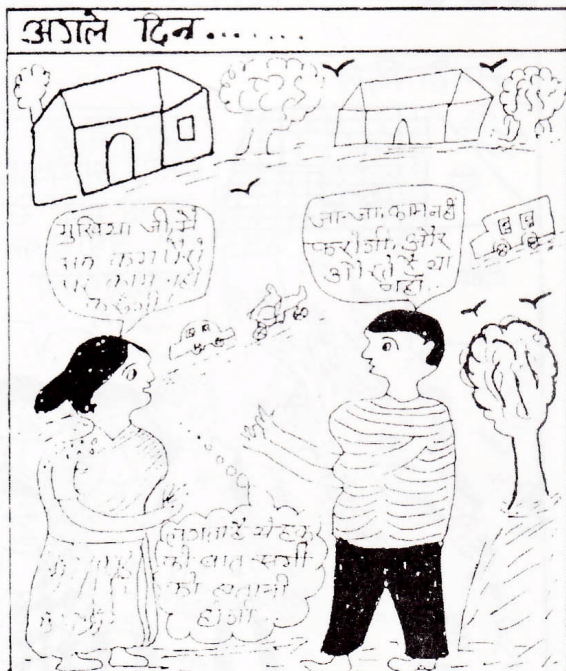 अगले दिन.......
मुखिया जी, मैं
पर काम नहीं
करूंगी!
जा-जा काम नहीं
करोगी और
औरतें हैं
लगता है ये हक
की बात सभी
को बतानी
होगी..